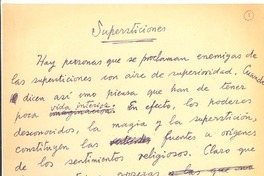 1
Supersticiones
Hay personas que se proclaman enemigas de
las supersticiones con aire de superioridad. Cuando
dicen así uno piensa que han de tener
poca vida interior. En efecto, los poderes
desconocidos, la magia y la superstición,
constituyen las fuentes u orígenes
de los sentimientos religiosos. Claro que